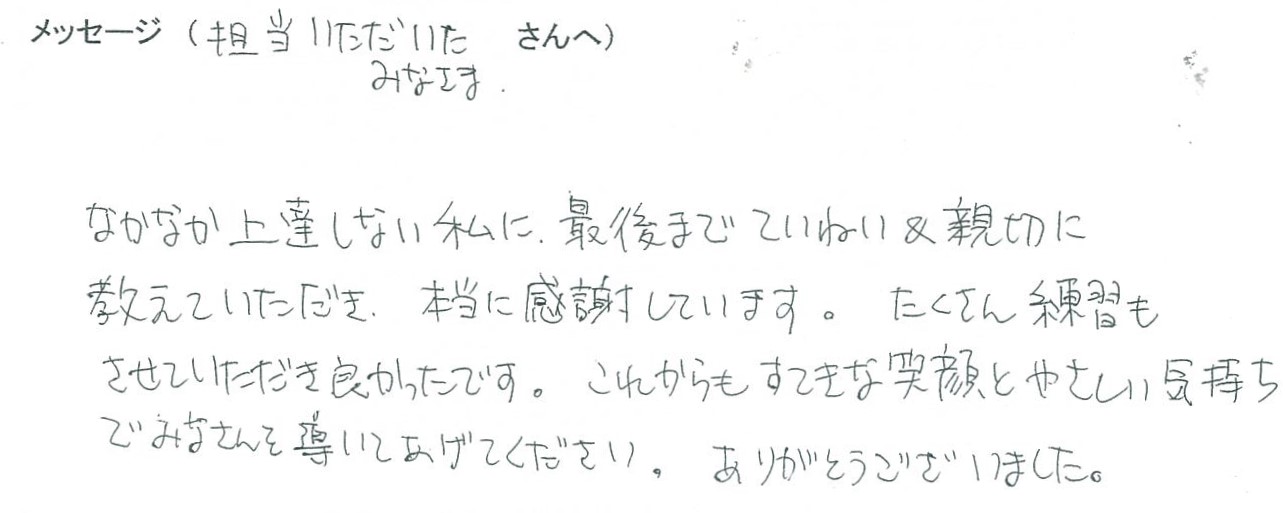 メッセージ（担当いただいた　さんへ）
みなさま.
なかなか上達しない私に、最後までていねい&親切に
教えていただき、本当に感謝しています。たくさん練習も
させていただき良かったです。これからもすてきな笑顔とやさしい気持ち
でみなさんを導いてあげてください。ありがとうございました。